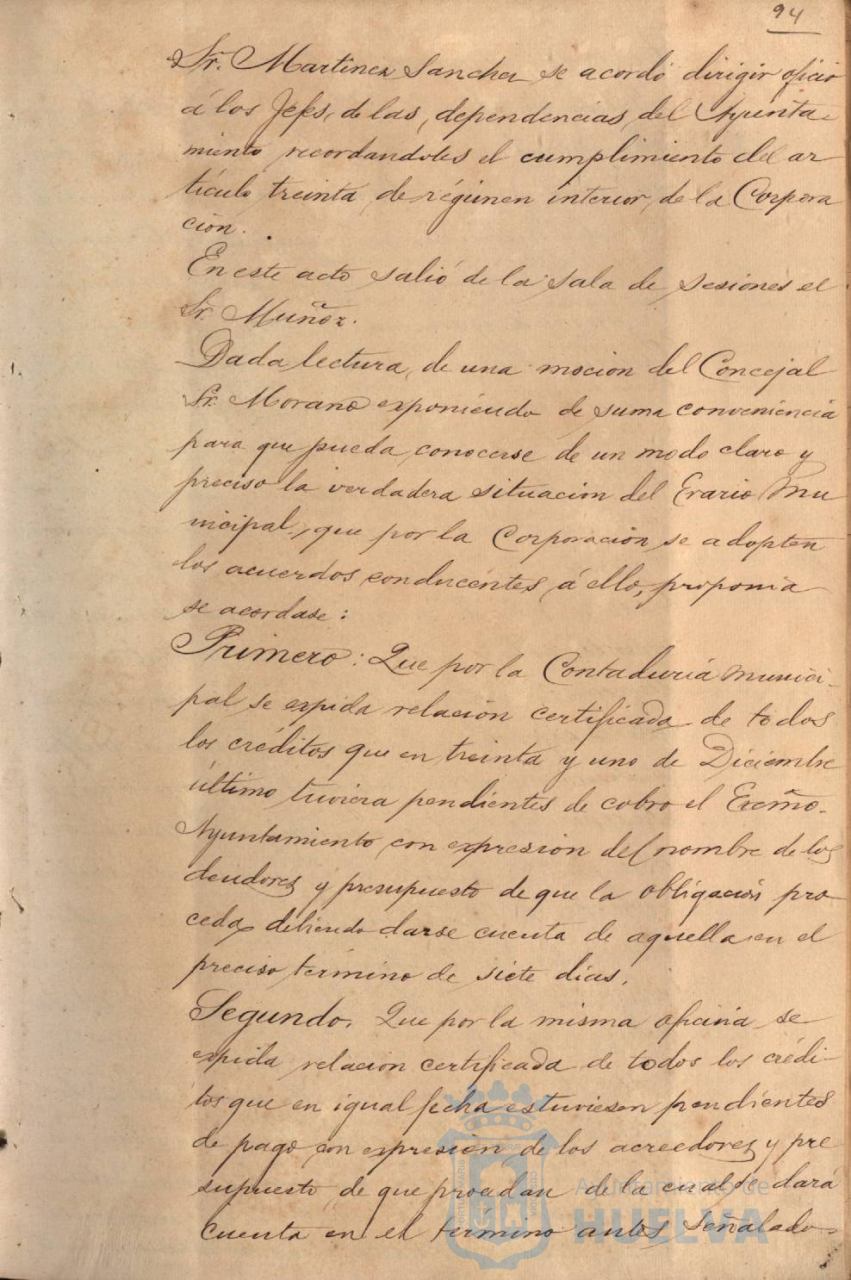 94
Sr. Martinez Sanchez se acordó dirigir oficio
á los Jefes, de las, dependencias, del Ayunta-
miento recordandoles el cumplimiento del ar
tículo treinta, de régimen interior, de la Corpora
cion.
En este acto salió de la sala de sesiones el
Sr. Muñoz.
Dada lectura, de una mocion del Concejal
Sr. Morano exponiendo de suma conveniencia
para que pueda, conocerse de un modo claro y
preciso la verdadera situacion del Erario Mu
nicipal, que por la Corporación, se adopten
los acuerdos conducentes, á ello, proponia
se acordase:
Primero: Que por la Contaduría munici-
pal, se expida relación certificada de todos
los créditos que en treinta y uno de Diciembre
último tuviera pendientes de cobro el Excmo.
Ayuntamiento, con expresión del nombre de los
deudores y presupuesto de que la obligación pro
ceda, debiendo darse cuenta de aquella en el
preciso término de siete dias.
Segundo. Que por la misma oficina se
expida relacion certificada de todos los crédi-
tos que en igual fecha estuviesen pendientes
de pago con expresión de los acreedores y pre
supuesto de que procedan de la cual se dará
cuenta en el termino antes señalado.
Ayuntamiento de
HUELVA